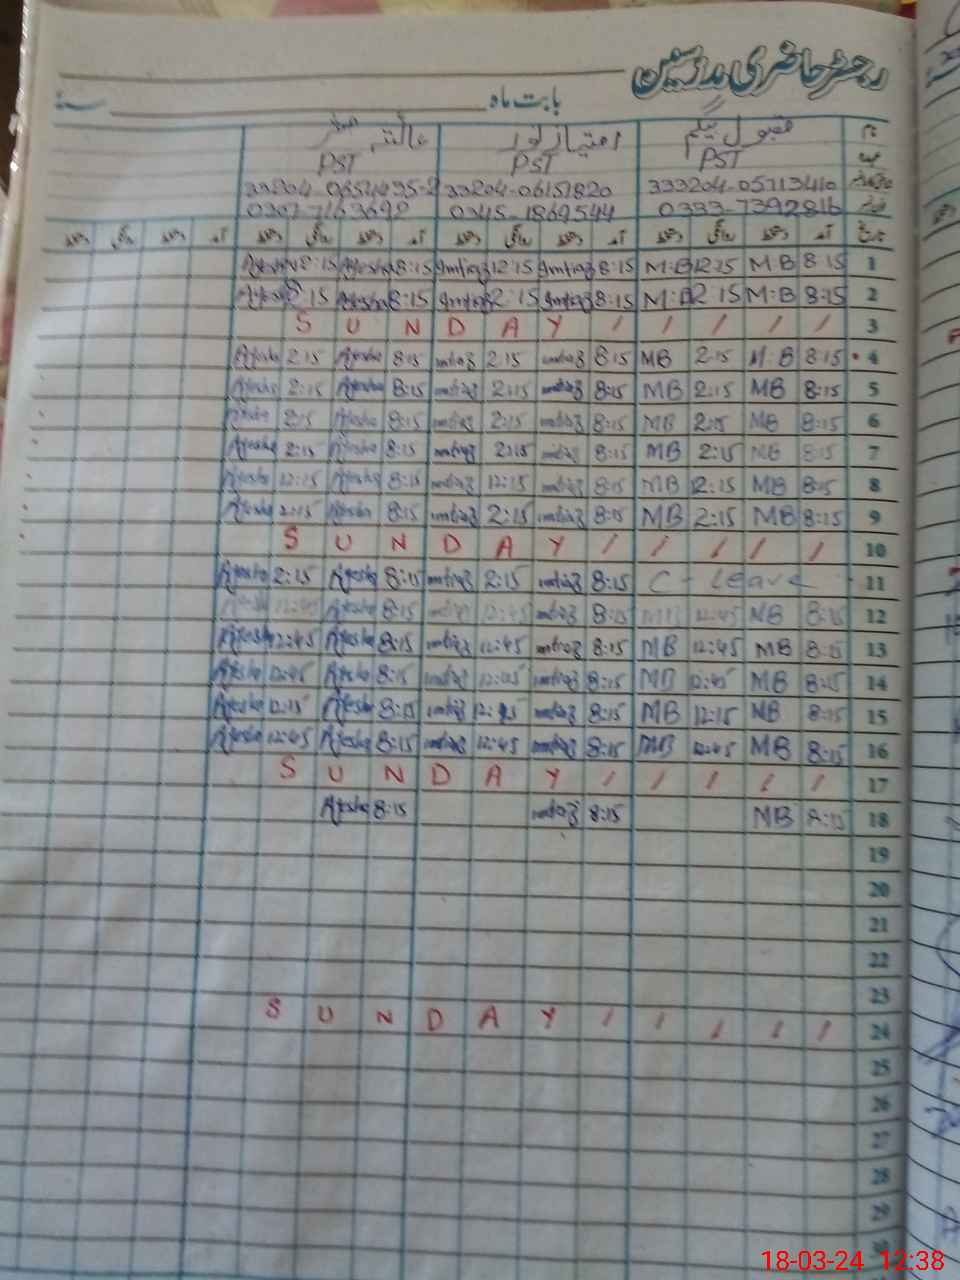 رجسٹر حاضری مدرسین
بابت ماہ سنہ
نام مقبول بیگم امتیاز نور عائشہ صفدر
عہدہ PST PST PST
333204-0571341 33204-06151820 33204-0654495-2
0333-7392816 0345-1869544 0307-7163698
تاریخ آمد دستخط روانگی دستخط آمد دستخط روانگی دستخط آمد دستخط روانگی دستخط آمد دستخط روانگی دستخط
1 8:15 M:B 12:15 M:B 8:15 Imtiaz 12:15 Imtiaz 8:15 Ayesha 2:15 Ayesha
2 8:15 M:B 2:15 M:B 8:15 Imtiaz 2:15 Imtiaz 8:15 Ayesha 2:15 Ayesha
3 S U N D A Y / / / / /
4 8:15 M:B 2:15 MB 8:15 imtiaz 2:15 imtiaz 8:15 Ayesha 2:15 Ayesha
5 8:15 MB 2:15 MB 8:15 imtiaz 2:15 imtiaz 8:15 Ayesha 2:15 Ayesha
6 8:15 MB 2:15 MB 8:15 imtiaz 2:15 imtiaz 8:15 Ayesha 2:15 Ayesha
7 8:15 MB 2:15 MB 8:15 imtiaz 2:15 imtiaz 8:15 Ayesha 2:15 Ayesha
8 8:15 MB 12:15 MB 8:15 imtiaz 12:15 imtiaz 8:15 Ayesha 12:15 Ayesha
9 8:15 MB 2:15 MB 8:15 imtiaz 2:15 imtiaz 8:15 Ayesha 2:15 Ayesha
10 S U N D A Y / / / / /
11 C - Leave 8:15 imtiaz 2:15 imtiaz 8:15 Ayesha 2:15 Ayesha
12 8:15 MB 12:45 MB 8:15 imtiaz 12:45 imtiaz 8:15 Ayesha 12:45 Ayesha
13 8:15 MB 12:45 MB 8:15 imtiaz 12:45 imtiaz 8:15 Ayesha 12:45 Ayesha
14 8:15 MB 12:45 MB 8:15 imtiaz 12:45 imtiaz 8:15 Ayesha 12:45 Ayesha
15 8:15 MB 12:15 MB 8:15 imtiaz imtiaz 8:15 Ayesha 12:15 Ayesha
16 8:15 MB 12:45 MB 8:15 imtiaz 12:45 imtiaz 8:15 Ayesha 12:45 Ayesha
17 S U N D A Y / / / / /
18 8:15 MB 8:15 imtiaz 8:15 Ayesha
19
20
21
22
23
24 S U N D A Y / / / / /
25
26
27
28
29
30
18-03-24 12:38